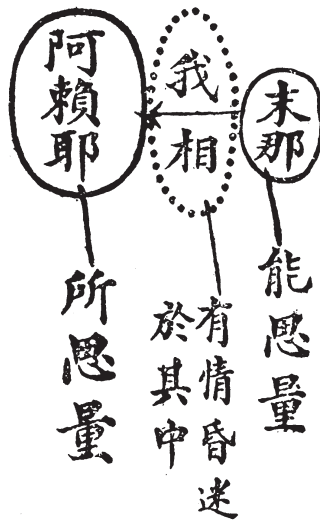 末那
能思量
我相
有情昏迷
於其中
阿賴耶
所思量